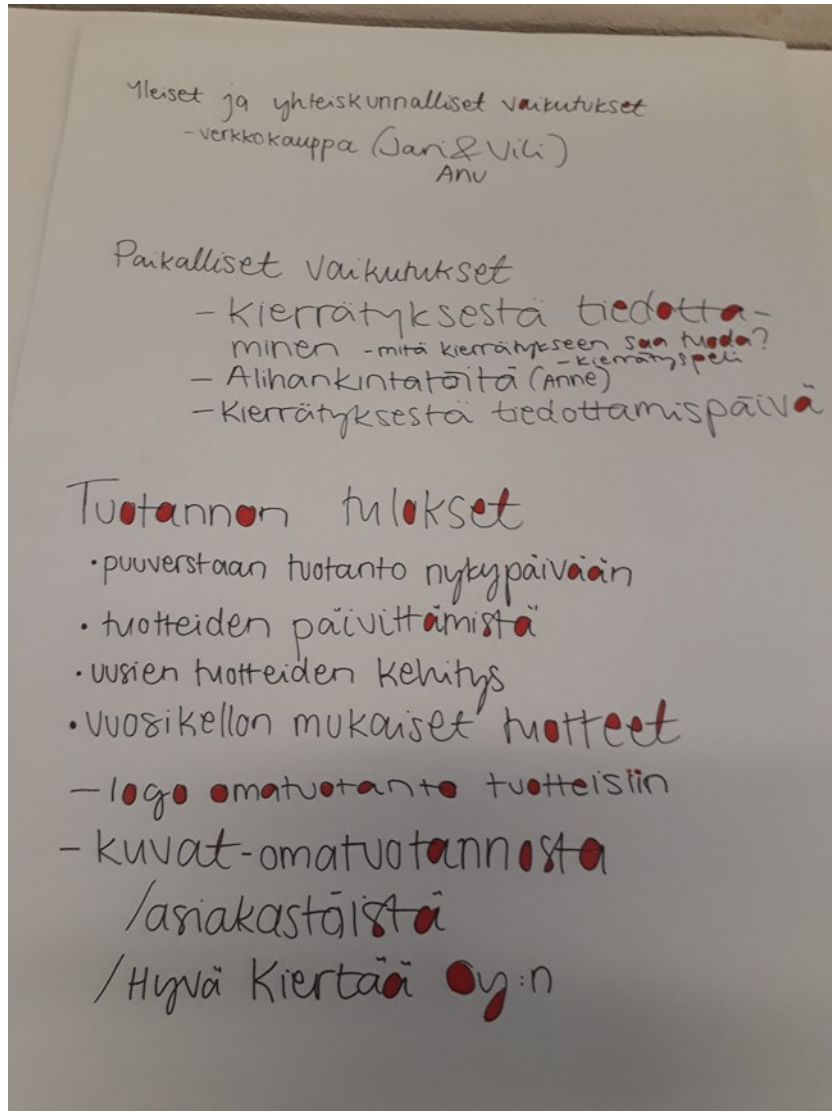 Yleiset ja yhteiskunnalliset vaikutukset
-verkkokauppa (Jari & Vili)
Anu
Paikalliset vaikutukset
- Kierrätyksestä tiedotta-
minen -mitä kierrätykseen saa tuoda?
-kierrätyspeli
- Alihankintatöitä (Anne)
- Kierrätyksestä tiedottamispäivä
Tuotannon tulokset
• puuverstaan tuotanto nykypäivään
• tuotteiden päivittämistä
• uusien tuotteiden kehitys
• vuosikellon mukaiset tuotteet
- logo omatuotanto tuotteisiin
- kuvat-omatuotannosta
/asiakastöistä
/Hyvä Kiertää Oy:n